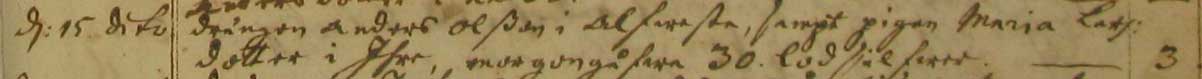 dj: 15 dito drängen Anders Olsson i Alfvereste, sampt pigan Maria Lars:
dotter i Ihre, morgongåfva 30. lod silfver. — 3